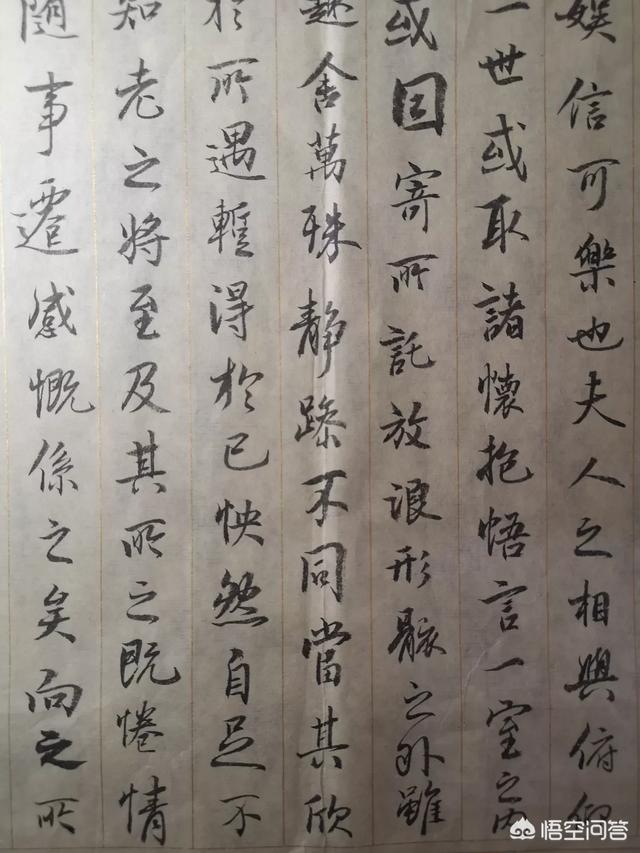 娱信可樂也夫人之相與俯仰
一世或取諸懷抱悟言一室之内
或因寄所託放浪形骸之外雖
趣舍萬殊静躁不同當其欣
於所遇蹔得於己怏然自足不
知老之將至及其所之既惓情
随事遷感慨係之矣向之所
悟空问答